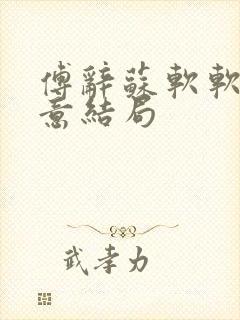 傅辭蘇軟軟
意結局
武孝力